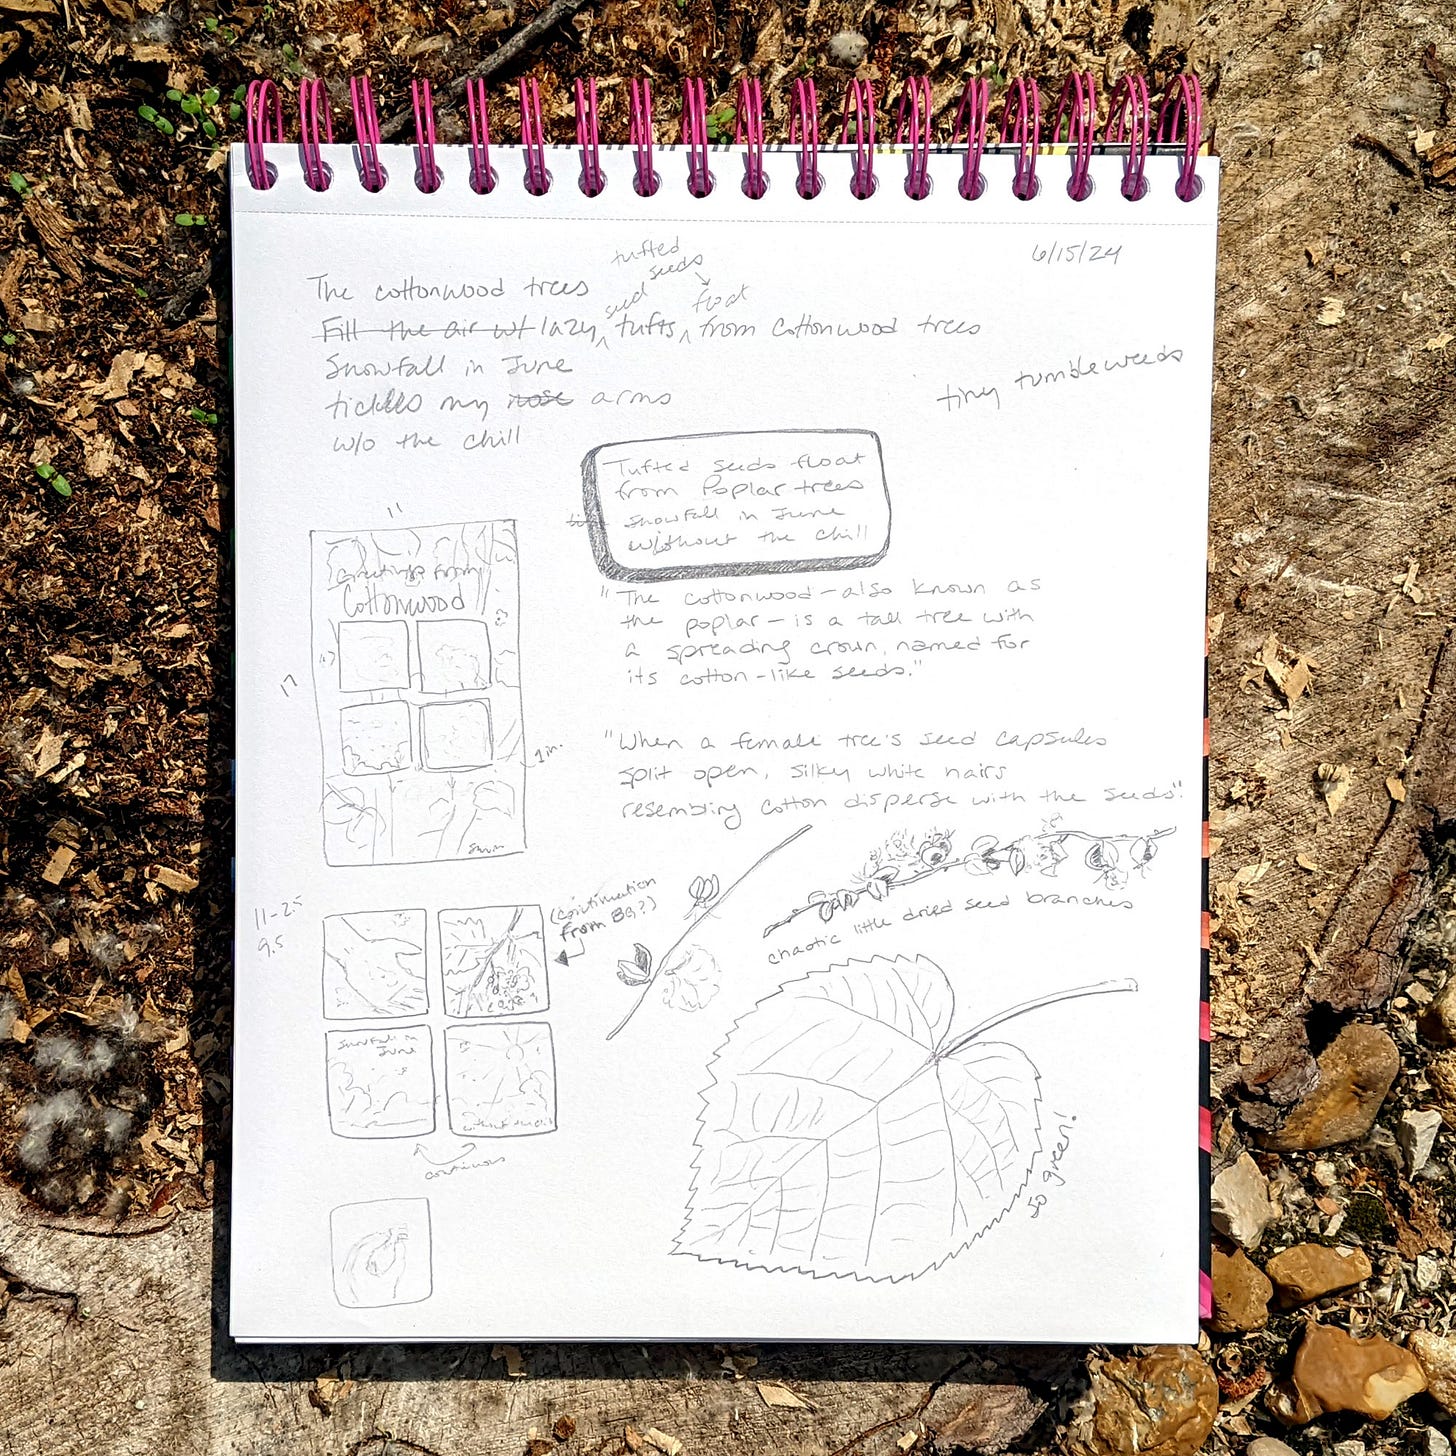 6/15/24
tufted
seeds
The cottonwood trees
seed float
Fill the air w/ lazy tufts from cottonwood trees
Snowfall in June
tickles my nose arms
w/o the chill
tiny tumbleweeds
Tufted seeds float
from Poplar trees
snowfall in June
without the chill
11
17
Greetings from
Cottonwood
1 in.
"The cottonwood – also known as
the poplar – is a tall tree with
a spreading crown, named for
its cotton-like seeds."
"When a female tree's seed capsules
split open, silky white hairs
resembling cotton disperse with the seeds".
chaotic little dried seed branches
(continuation
from BG?)
11-2.5
9.5
Snowfall in
June
without the chill
continuous
so green!